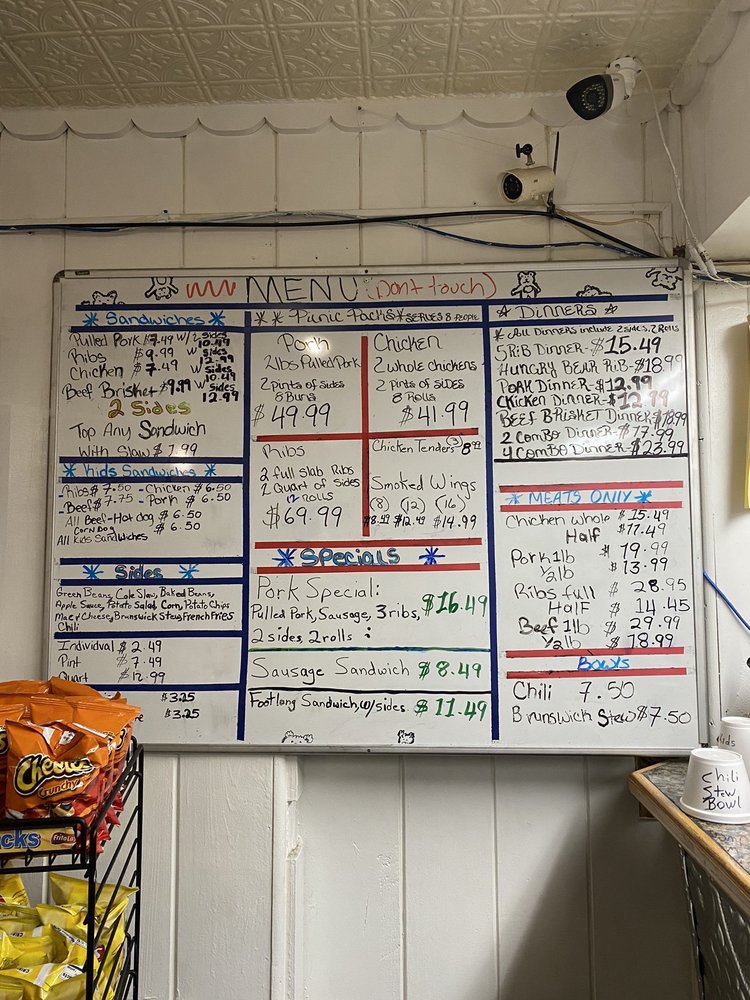 MENU (Don't touch)
* Sandwiches *
Pulled Pork $7.49 w/ 2 sides 10.49
Ribs $9.99 w sides 12.99
Chicken $7.49 w sides 10.49
Beef Brisket $9.99 w sides 12.99
2 Sides
Top Any Sandwich
With Slaw $1.99
* Kids Sandwiches *
Ribs $7.50 - Chicken $6.50
Beef $7.75 - Pork $6.50
All Beef-Hot dog $6.50
Corn Dog $6.50
All Kids Sandwiches
* Sides *
Green Beans, Cole Slaw, Baked Beans,
Apple Sauce, Potato Salad, Corn, Potato Chips
Mac & Cheese, Brunswick Stew, French Fries
Chili
Individual $2.49
Pint $7.49
Quart $12.99
$3.25
$3.25
** Picnic Packs * SERVES 8 PEOPLE
Pork
2lbs Pulled Pork
2 pints of sides
8 Buns
$49.99
Chicken
2 whole chickens
2 pints of sides
8 Rolls
$41.99
Ribs
2 full Slab Ribs
1 Quart of Sides
12 rolls
$69.99
Chicken Tenders (3) 8.99
Smoked Wings
(8) (12) (16)
$12.49 $14.99
* Specials *
Pork Special:
Pulled Pork, Sausage, 3 ribs, $16.49
2 sides, 2 rolls
Sausage Sandwich $8.49
Footlong Sandwich, w/ sides $11.49
☆ DINNERS ☆
* All Dinners include 2 sides, 2 Rolls
5 Rib Dinner - $15.49
Hungry Bear Rib - $18.99
Pork Dinner - $12.99
Chicken Dinner - $12.99
Beef Brisket Dinner - $18.99
2 Combo Dinner - $17.99
4 Combo Dinner - $23.99
* MEATS ONLY *
Chicken whole $15.49
Half $11.49
Pork 1lb $19.99
1/2lb $13.99
Ribs full $28.95
Half $14.45
Beef 1lb $29.99
1/2lb $18.99
Bowls
Chili 7.50
Brunswick Stew $7.50
Cheetos
Crunchy
Frito Lay
Kids
Chili
Stew
Bowl